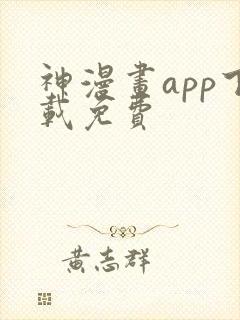 神漫畫app下
載免費
黃志群